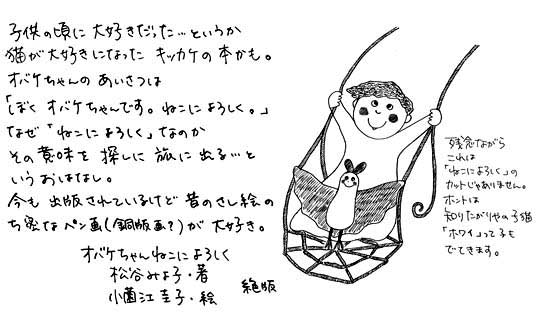 子供の頃に大好きだった…というか
猫が大好きになった キッカケの本かも。
オバケちゃんの あいさつは
「ぼく オバケちゃんです。ねこによろしく。」
なぜ「ねこによろしく」なのか
その意味を 探しに 旅に 出る…と
いうおはなし。
今も 出版されているけど 昔のさし絵の
ち密なペン画(銅版画?)が 大好き。
オバケちゃん ねこによろしく
松谷みよ子・著
小薗江圭子・絵
絶版
残念ながら
これは
「ねこによろしく」の
カットじゃありません。
ホントは
知りたがりやの子猫
「ホワイ」って子も
でてきます。